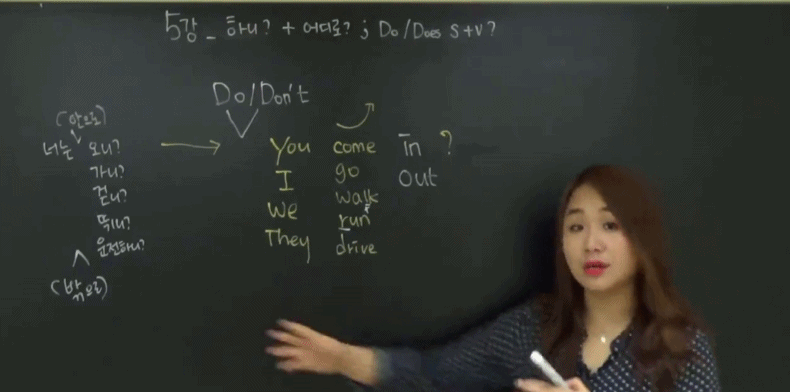 5강_ 하니? + 어디로? ; Do/Does S+V?
Do/Don't
(안으로)
너는 오니? → You come in ?
가니? I go out
걷니? We walk
뛰니? They run
운전하니? drive
(밖으로)